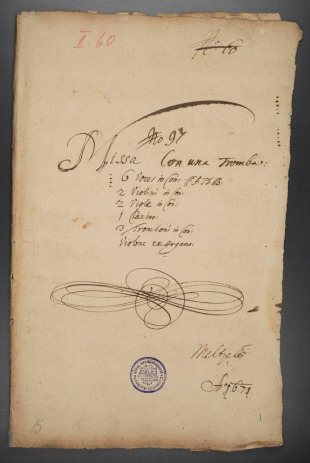 I. 60
No 97
Missa Con una Tromba.
6 Voces in Con:
2 Violini in Con:
2 Viole in Con:
1 Clarino
3 Tromboni in Con:
Violone et Organo.
15